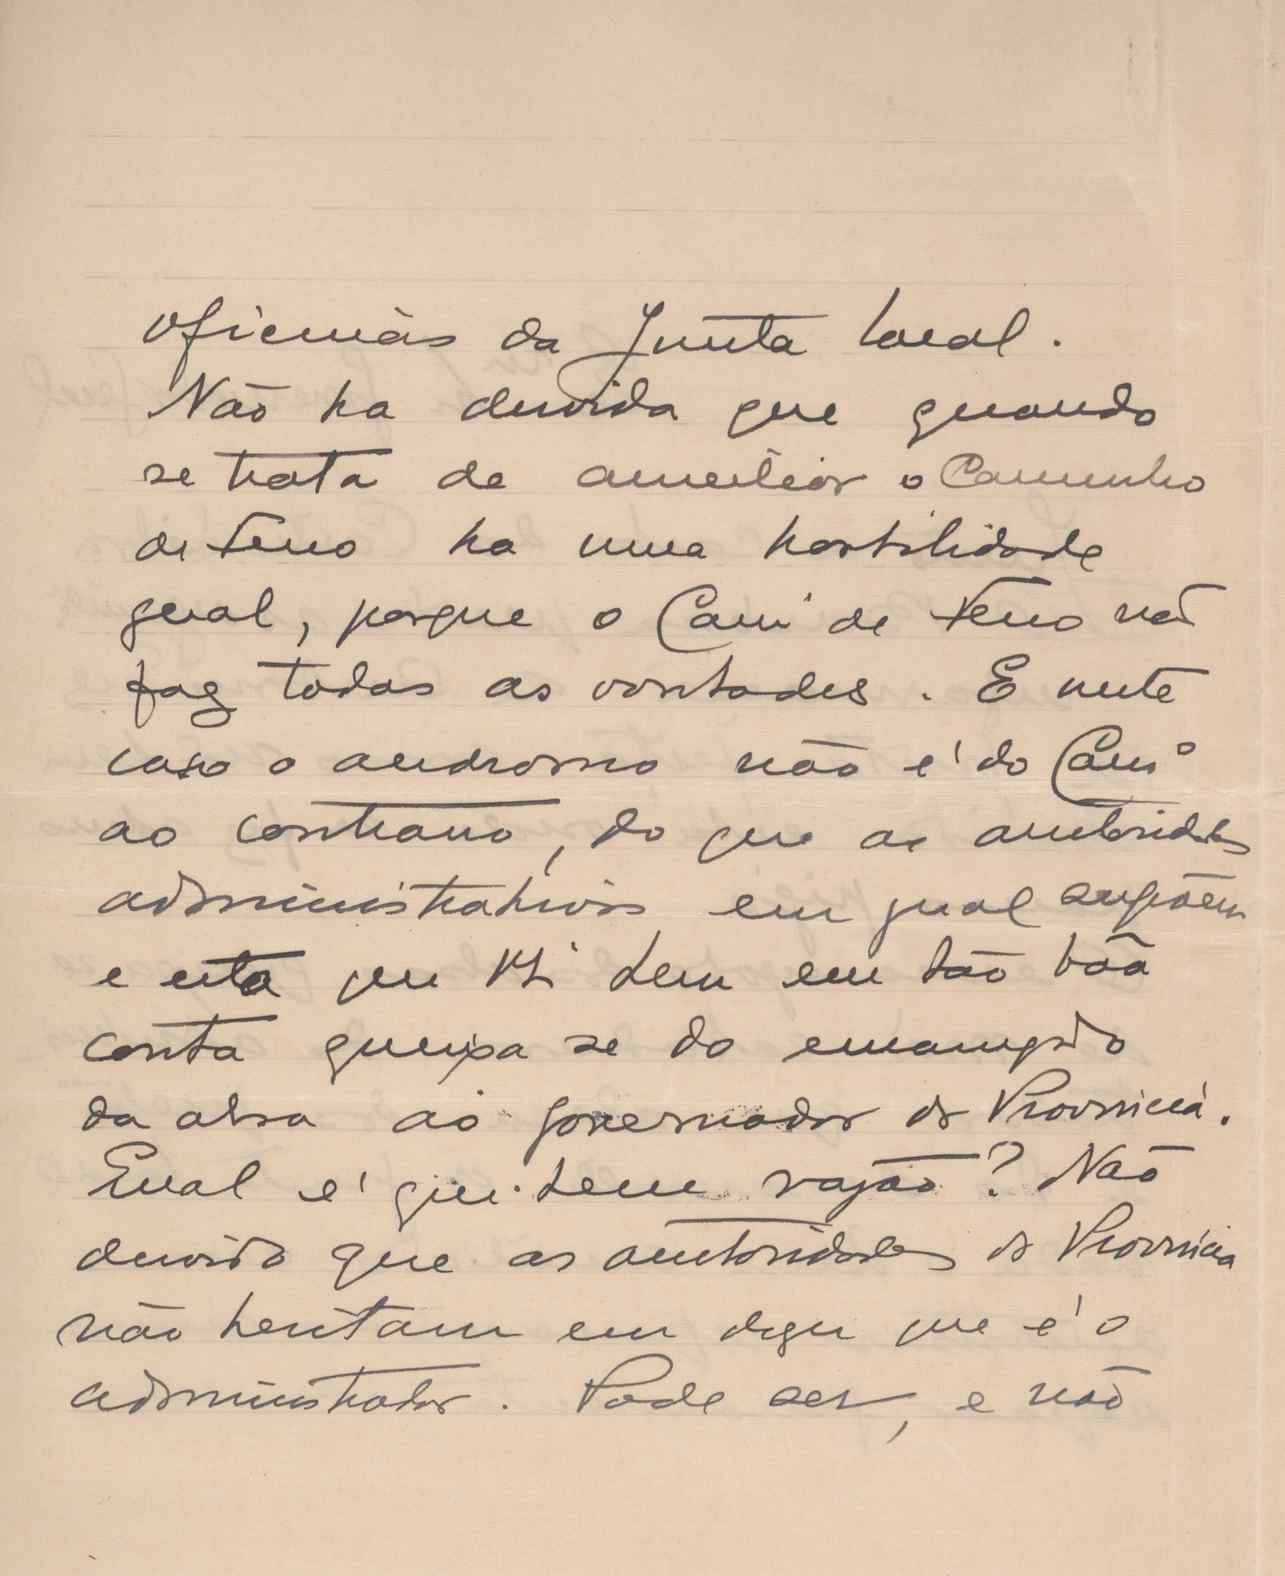 oficinas da Junta local.
Não ha duvida que quando
se trata de auxiliar o Caminho
de ferro ha uma hostilidade
geral, porque o Cam° de ferro não
faz todas as vontades. E neste
caso o não é do Cam°
ao contrario, do que as autoridades
administrativas em geral supõem
e esta que VEx tem em tão bôa
conta queixa se do
da obra ao governador da Provincia.
Qual é que tem razão? Não
duvido que as autoridades da Provincia
não hesitam em dizer que é o
administrador. Pode ser, e não